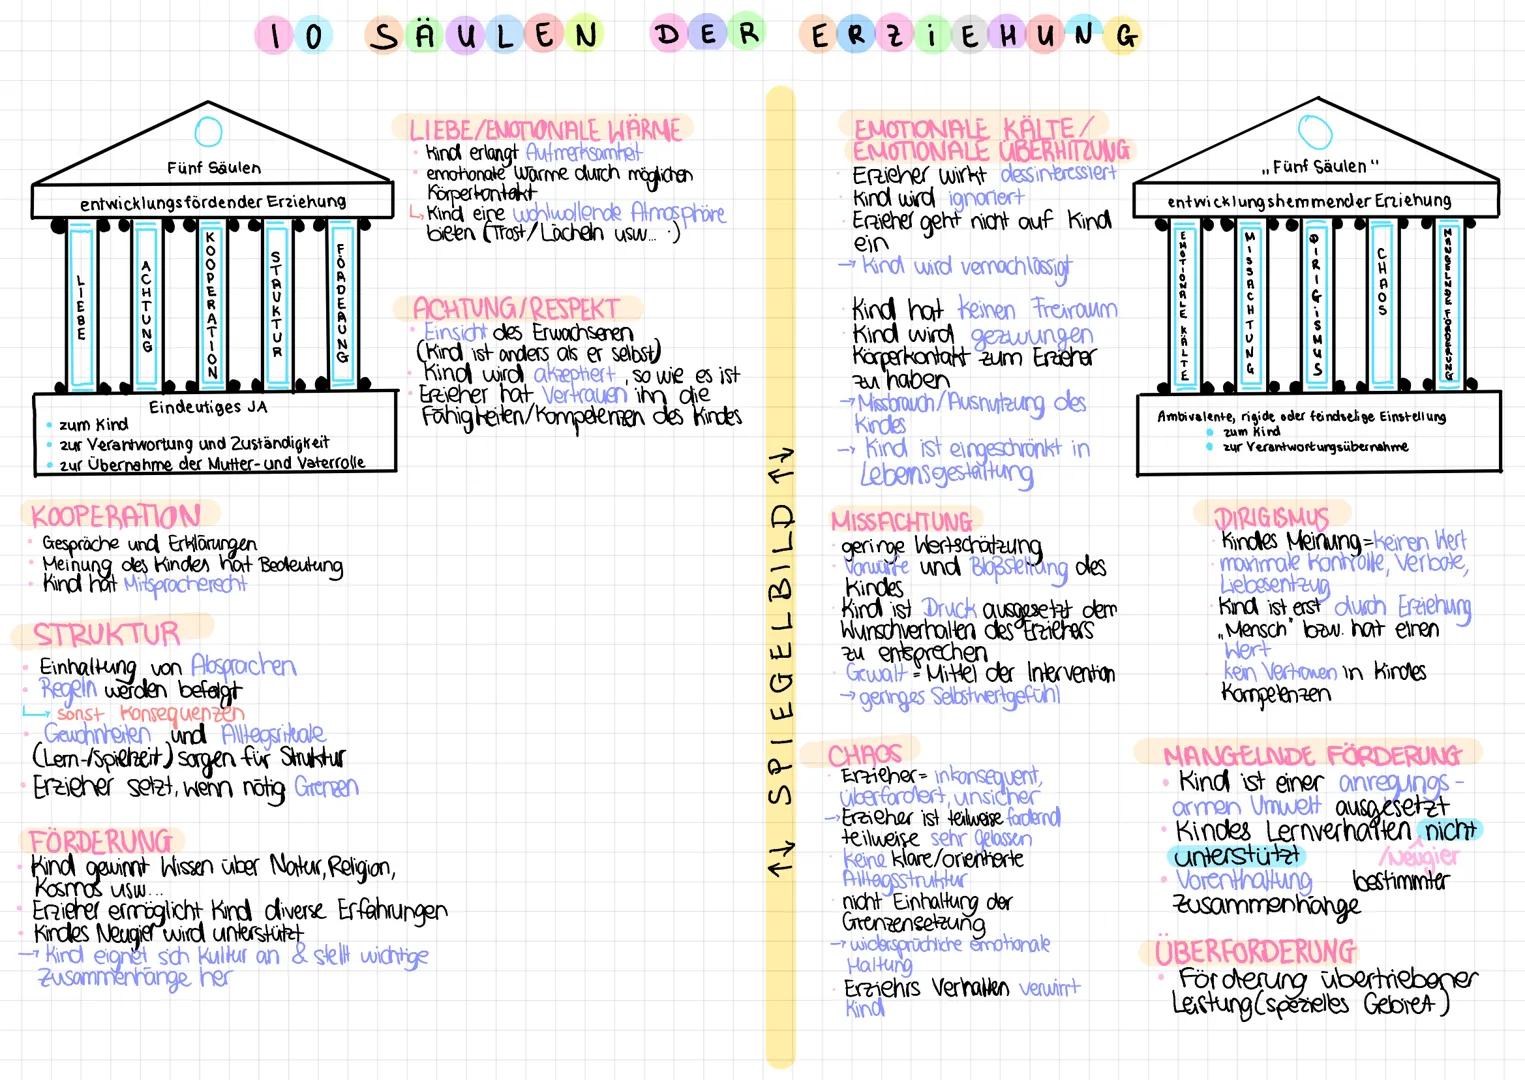 10 SÄULEN DER ERZiEHUNG
Fünf Säulen
entwicklungsfördender Erziehung
LIEBE
ACHTUNG
KOOPERATION
STRUKTUR
FÖRDERUNG
Eindeutiges JA
• zum Kind
• zur Verantwortung und Zuständigkeit
• zur Übernahme der Mutter- und Vaterrolle
LIEBE/EMOTIONALE WÄRME
• Kind erlangt Aufmerksamkeit
• emotionale Wärme durch möglichen
Körperkontakt
↳ Kind eine wohlwollende Atmosphäre
bieten (Trost/Lächeln usw... .)
ACHTUNG/RESPEKT
• Einsicht des Erwachsenen
(Kind ist anders als er selbst)
• Kind wird akzeptiert, so wie es ist
• Erzieher hat Vertrauen inn die
Fähigkeiten/Kompetenzen des Kindes
KOOPERATION
• Gespräche und Erklärungen
• Meinung des Kindes hat Bedeutung
• Kind hat Mitspracherecht
STRUKTUR
• Einhaltung von Absprachen
• Regeln werden befolgt
↳ sonst Konsequenzen
• Gewohnheiten und Alltegsrituale
(Lern-/Spielzeit) sorgen für Struktur
• Erzieher setzt, wenn nötig Grenzen
FÖRDERUNG
• Kind gewinnt Wissen über Natur, Religion,
Kosmos usw...
• Erzieher ermöglicht Kind diverse Erfahrungen
• Kindes Neugier wird unterstützt
→ Kind eignet sch Kultur an & stellt wichtige
Zusammenhänge her
↑↓ SPIEGELBILD ↑↓
EMOTIONALE KÄLTE/
EMOTIONALE ÜBERHITZUNG
• Erzieher wirkt dessinteressiert
• Kind wird ignoriert
• Erzieher geht nicht auf Kind
ein
→ Kind wird vernachlässigt
• Kind hat keinen Freiraum
• Kind wird gezwungen
Körperkontakt zum Erzieher
zu haben
→ Missbrauch/Ausnutzung des
Kindes
→ Kind ist eingeschränkt in
Lebensgestaltung
„Fünf Säulen"
entwicklungshemmender Erziehung
EMOTIONALE KÄLTE
MISSACHTUNG
DIRIGiSMUS
CHAOS
MANGELNDE FÖRDERUNG
Ambivalente, rigide oder feindselige Einstellung
• zum Kind
• zur Verantwortungsübernahme
MISSACHTUNG
• geringe Wertschätzung
• Vorwürfe und Bloßstellung des
Kindes
• Kind ist Druck ausgesetzt dem
Wunschverhalten des Erziehers
zu entsprechen
• Gewalt = Mittel der Intervention
→ geringes Selbstwertgefühl
DIRIGISMUS
• Kindes Meinung = keinen Wert
• maximale Kontrolle, Verbote,
Liebesentzug
• Kind ist erst durch Erziehung
„Mensch" bzw. hat einen
Wert
• kein Vertrauen in Kindes
Kompetenzen
CHAOS
• Erzieher = inkonsequent,
überfordert, unsicher
→ Erzieher ist teilweise fordernd
teilweise sehr gelassen
• keine klare/orientierte
Alltagsstruktur
• nicht Einhaltung der
Grenzensetzung
→ widersprüchliche emotionale
Haltung
• Erziehrs Verhalten verwirrt
Kind
MANGELNDE FÖRDERUNG
• Kind ist einer anregungs-
armen Umwelt ausgesetzt
• Kindes Lernverhalten nicht
unterstützt /Neugier
• Vorenthaltung bestimmter
Zusammenhänge
ÜBERFORDERUNG
• Förderung übertriebener
Leistung (spezielles Gebiet)